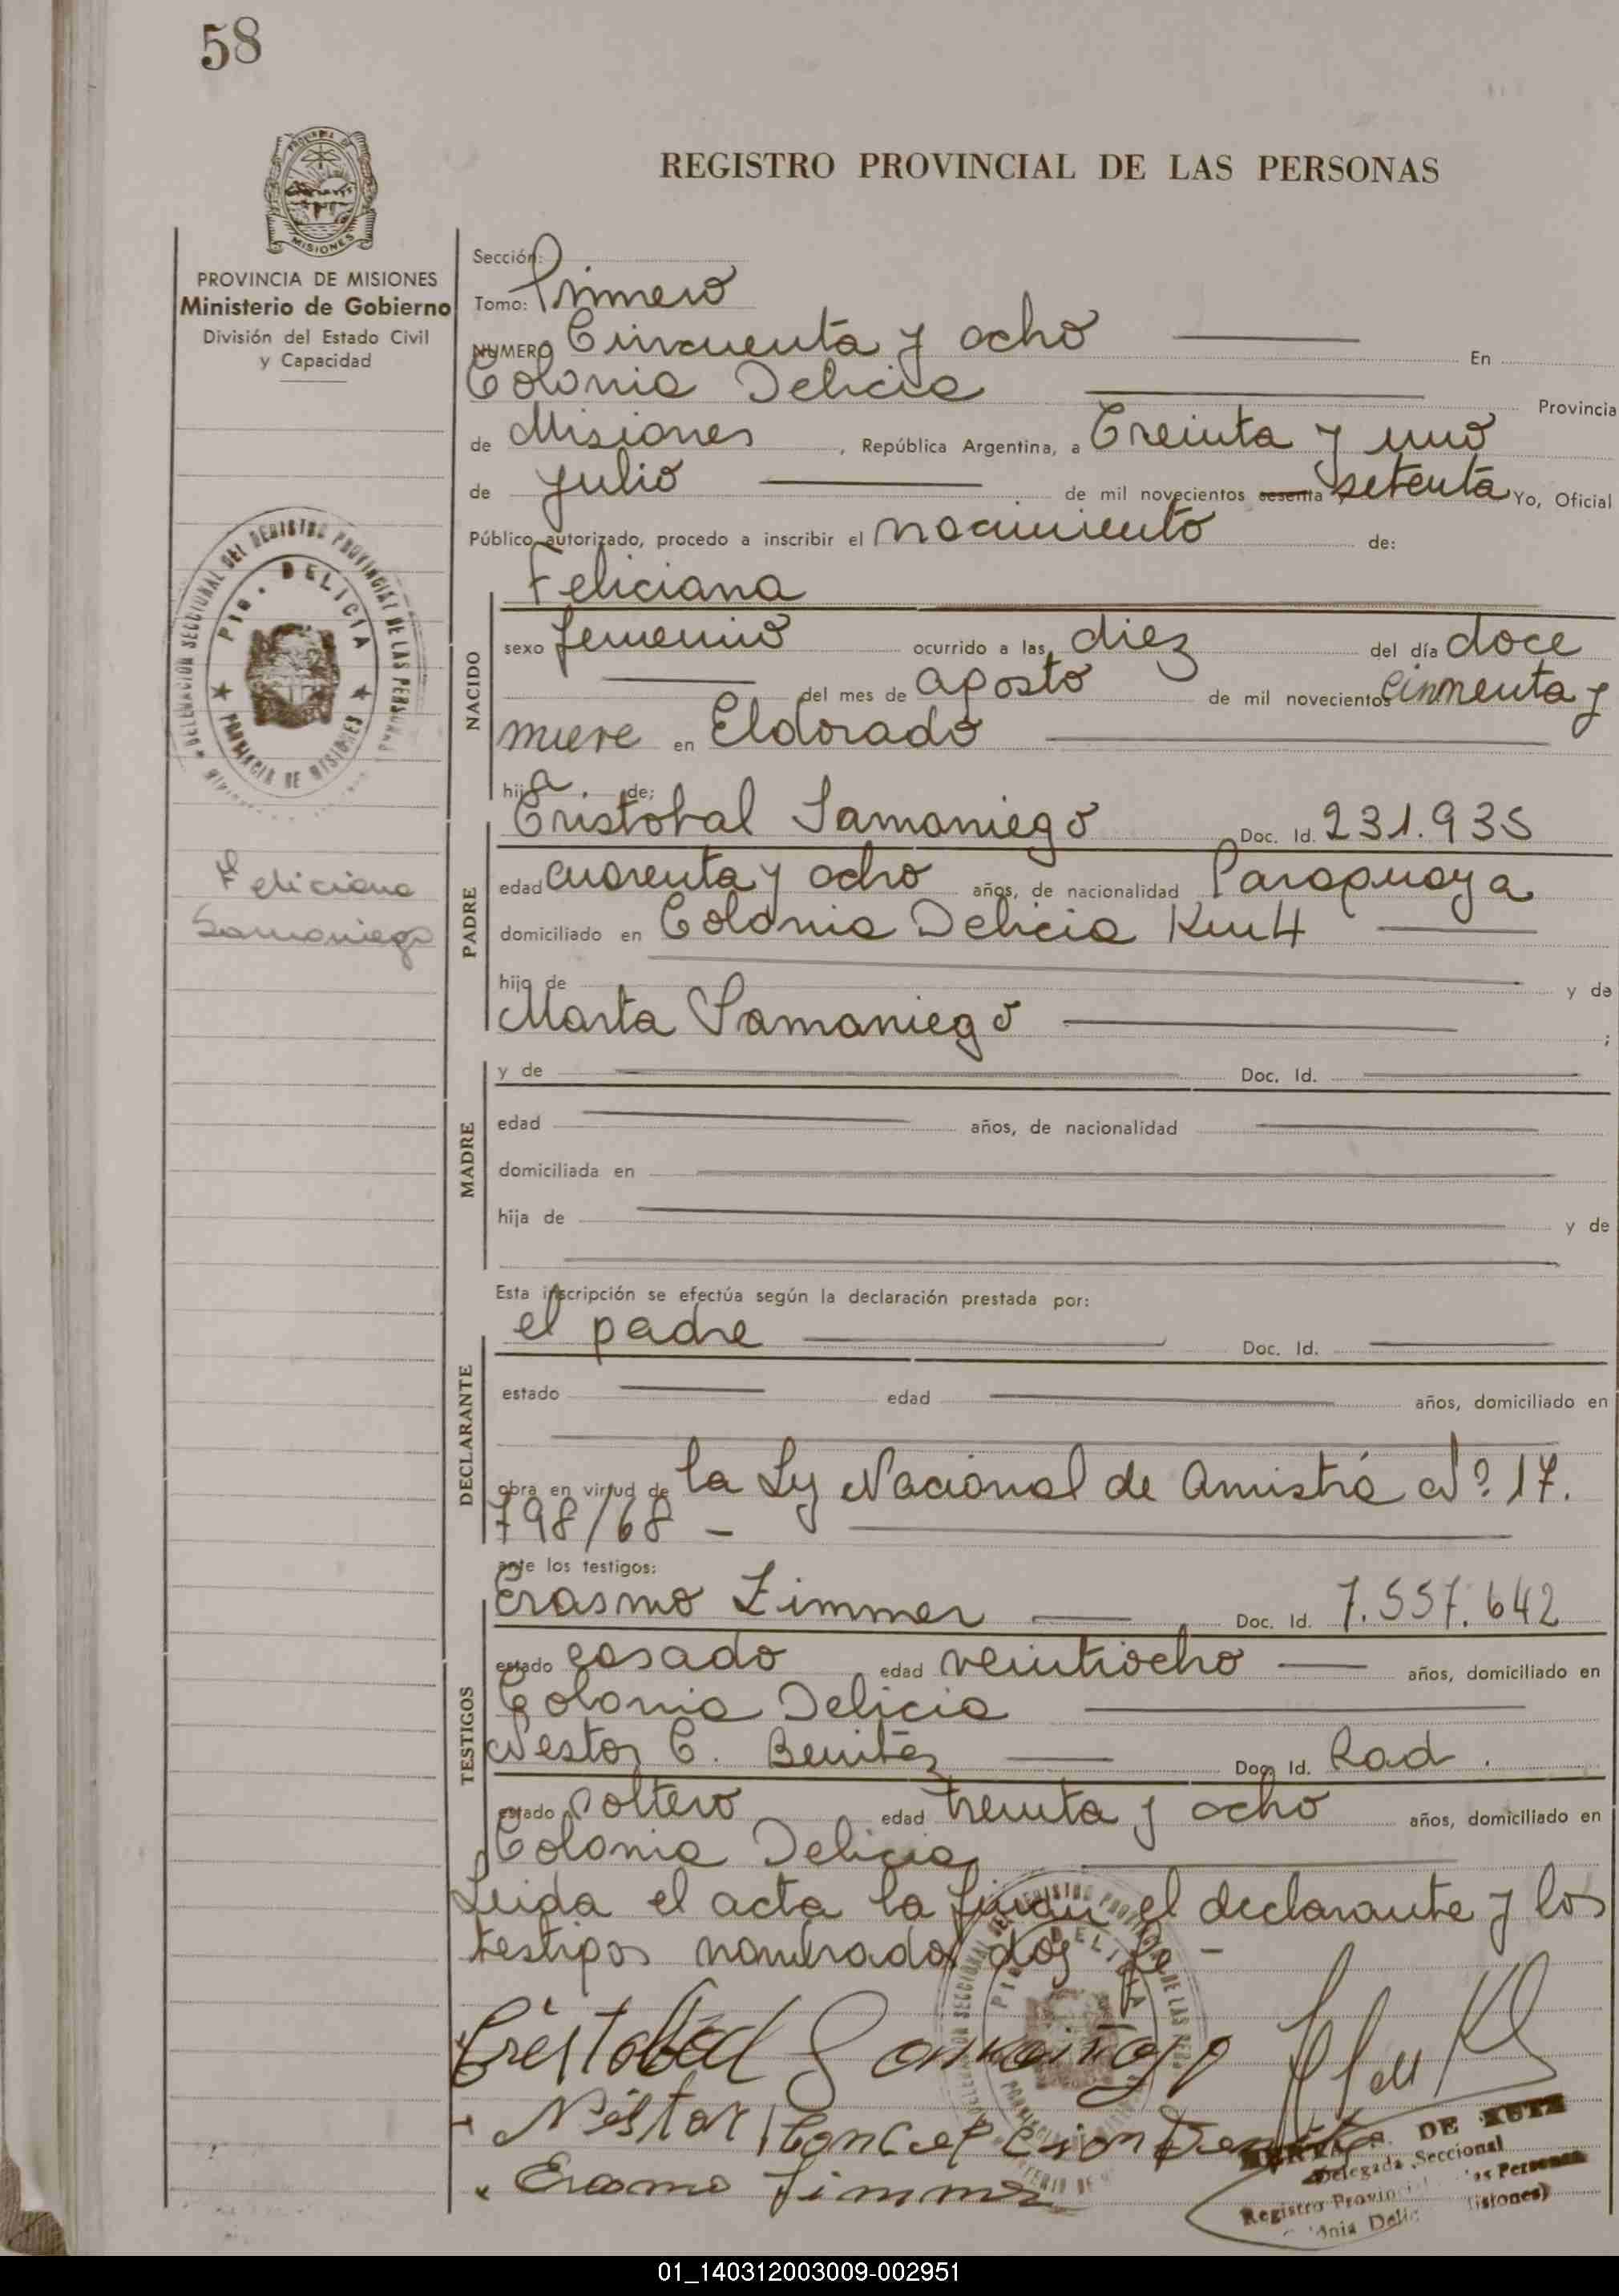 58
MISIONES
REGISTRO PROVINCIAL DE LAS PERSONAS
PROVINCIA DE MISIONES
Ministerio de Gobierno
División del Estado Civil
y Capacidad
Sección:
Tomo: Primero
NUMERO Cincuenta y ocho En
Colonia Delicia Provincia
de Misiones, República Argentina, a Treinta y uno
de Julio de mil novecientos sesenta y setenta Yo, Oficial
Público autorizado, procedo a inscribir el nacimiento de:
Feliciana
NACIDO
sexo femenino ocurrido a las diez del día doce
del mes de agosto de mil novecientos cincuenta y
nueve en Eldorado
hija de:
DELEGACION SECCIONAL DEL REGISTRO PROVINCIAL DE LAS PERSONAS
PTO. DELICIA
PROVINCIA DE MISIONES
Feliciana
Samaniego
PADRE
Cristobal Samaniego Doc. Id. 231.935
edad cuarenta y ocho años, de nacionalidad Paraguaya
domiciliado en Colonia Delicia Km 4
hijo de y de
Marta Samaniego ;
MADRE
y de Doc. Id.
edad años, de nacionalidad
domiciliada en
hija de y de
Esta inscripción se efectúa según la declaración prestada por:
DECLARANTE
el padre Doc. Id.
estado edad años, domiciliado en
obra en virtud de la Ley Nacional de Amistía Nº 17.
798/68 -
ante los testigos:
TESTIGOS
Erasmo Zimmer Doc. Id. 7.557.642
estado casado edad veintiocho años, domiciliado en
Colonia Delicia
Nestor C. Benitez Doc. Id. Rad.
estado soltero edad treinta y ocho años, domiciliado en
Colonia Delicia
Leida el acta la firman el declarante y los
testigos nombrados doy fe -
Néstor Concepcion Benitez
Erasmo Zimmer
DE KUTZ
Delegada Seccional
Registro Provincial las Personas
Delic Misiones)
01_140312003009-002951